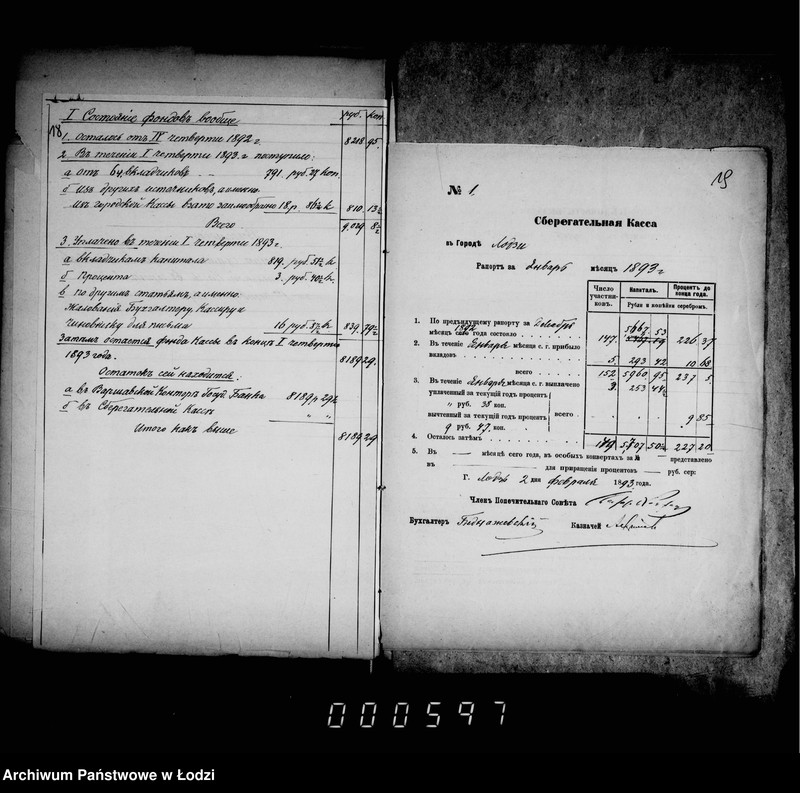 18
I Состояніе фондовъ вообще. руб. коп
1. Осталось отъ IV четверти 1892 г. 8218 95
2. Въ теченіи I четверти 1893 г поступило:
а отъ 64 вкладчиковъ - - 791 руб. 27 коп.
б изъ другихъ источниковъ, а именно
изъ городской Кассы взято заимообразно 18 р. 86½ к 810 13½
Всего 9,029 8½
3. Уплачено въ теченіи I четверти 1893 г.
а вкладчикамъ капитала 819 руб 51½ к
б Процента 3 руб. 40½ к.
в по другимъ статьямъ, а именно:
Жалованія Бухгалтеру, Кассиру и
Чиновнику для письма 16 руб 87½ к 839 79½
Затѣмъ остается фонда Кассы въ концѣ I четверти
1893 года. 8189 29.
Остатокъ сей находится:
а въ Варшавской Конторѣ Госуд. Банка 8189 р 29 к
б въ Сберегательной Кассѣ " "
Итого какъ выше 8189 29
19
№ 1.
Сберегательная Касса
въ Городѣ Лодзи
Рапортъ за Январь мѣсяцъ 1893 г
Число участниковъ. Капиталъ. Процентъ до конца года.
Рубли и копѣйки серебромъ.
1. По предъидущему рапорту за Декабрь
мѣсяцъ 1892 сего года состояло 147. 5667 53 226 37
2. Въ теченіе Январь мѣсяца с. г. прибыло
вкладовъ 5. 293 42 10 68
всего 152 5960 95 237 5
3. Въ теченіе Январь мѣсяца с. г. выплачено 3. 253 44½
уплаченный за текущій годъ процентъ
" руб. 38 коп.
вычтенный за текущій годъ процентъ всего 9 85
9 руб. 47 коп.
4. Осталось затѣмъ 149 5707 50½ 227 20
5. Въ — мѣсяцѣ сего года, въ особыхъ конвертахъ за № представлено
въ — для приращенія процентовъ — руб. сер:
Г. Лодзь 2 дня февраля 1893 года.
Членъ Попечительнаго Совѣта
Бухгалтеръ Казначей
000597
Archiwum Państwowe w Łodzi